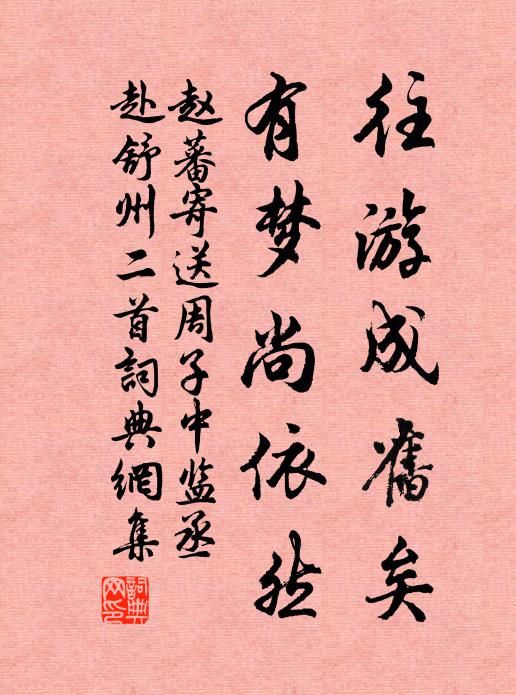 往游成舊矣
有梦尚依然
赵蕃寄送周子中监丞
赴舒州二首詞典網集
詞典
网印